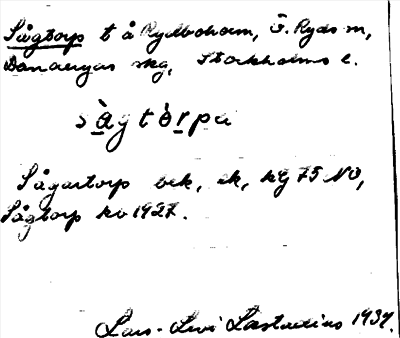 Sågtorp t å Rydboholm, Ö. Ryds sn,
Danderyds skg, Stockholms l.
sàgtòrpa
Sågartorp bek, ek, kbg 75 NO,
Sågtorp kv 1927.
Lars-Levi Læstadius 1934.